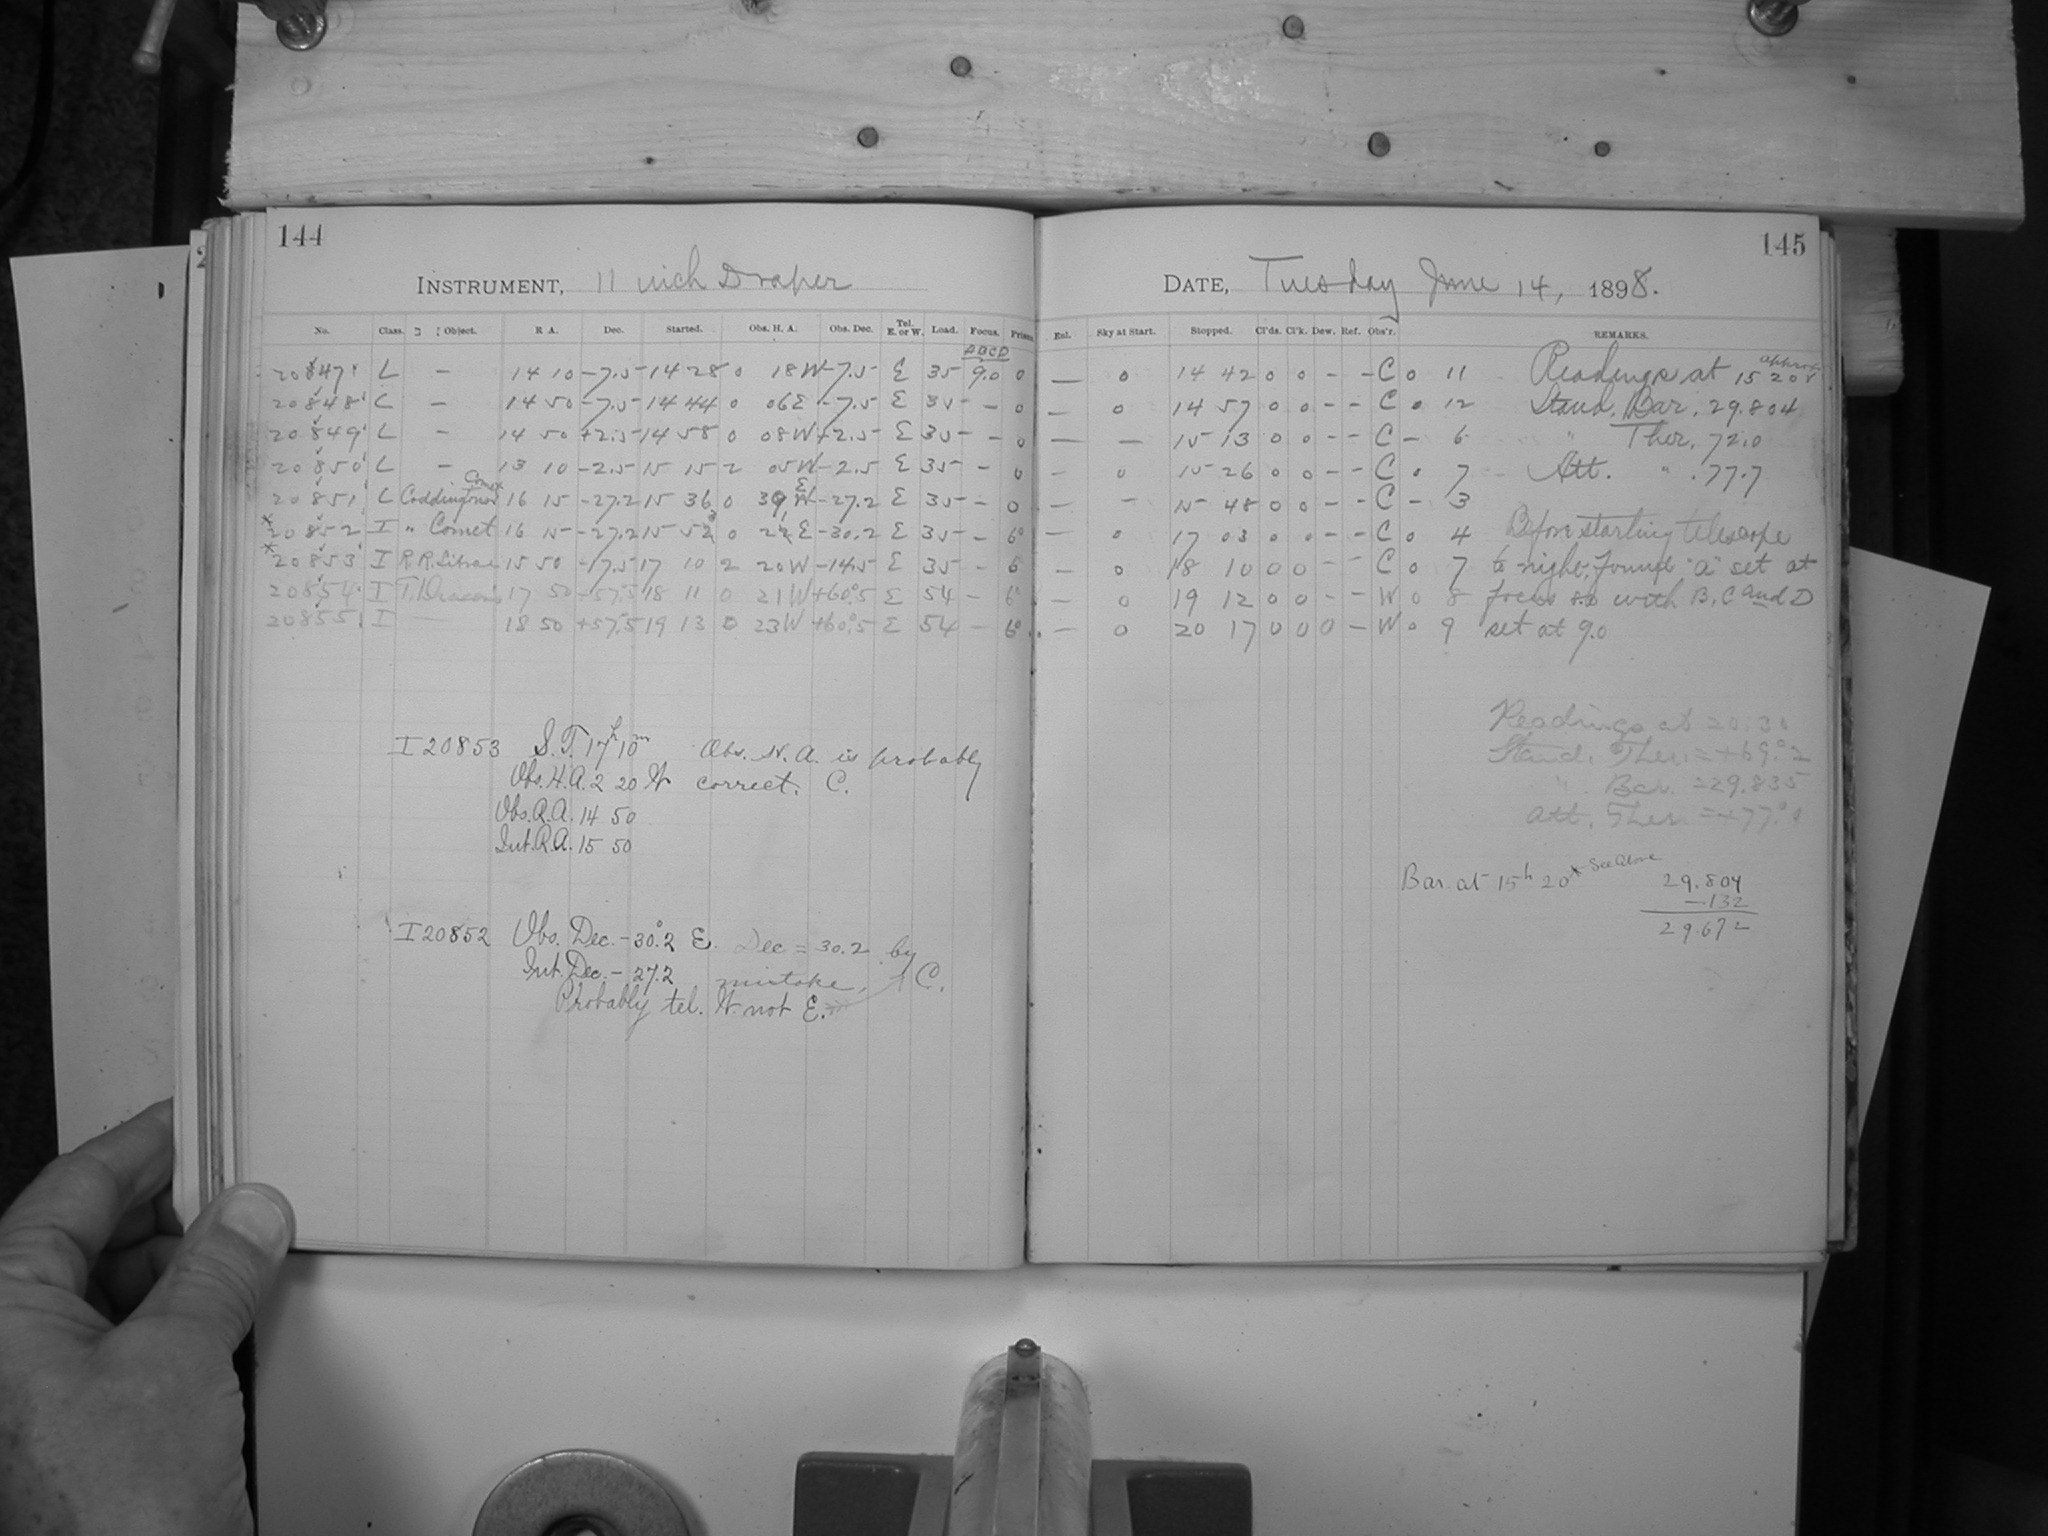 144
INSTRUMENT, 11 inch Draper
No. Class. Object. R A. Dec. Started. Obs. H. A. Obs. Dec. Tel. E. or W. Load. Focus. Prism
ABCD
20847 L – 14 10 –7.5 14 28 0 18 W –7.5 E 35 9.0 0
20848 L – 14 50 –7.5 14 44 0 06 E –7.5 E 35 – 0
20849 L – 14 50 +2.5 14 58 0 08 W +2.5 E 35 – 0
20850 L – 13 10 –2.5 15 15 2 05 W –2.5 E 35 – 0
20851 L Coddington Comet 16 15 –27.2 15 36 0 39 E –27.2 E 35 – 0
* 20852 I " Comet 16 15 –27.2 15 53 0 22 E –30.2 E 35 – 6°
* 20853 I R.R. Librae 15 50 –17.5 17 10 2 20 W –14.5 E 35 – 6
20854 I T. Draconis 17 50 +57.5 18 11 0 21 W +60°.5 E 54 – 6°
20855 I — 18 50 +57°.5 19 13 0 23 W +60°.5 E 54 – 6°
I 20853 S.T. 17h 10m Obs. H.A. is probably
Obs. H.A. 2 20 W correct. C.
Obs. R.A. 14 50
Int. R.A. 15 50
I 20852 Obs. Dec. –30°.2 E. Dec = 30.2 by
Int. Dec. – 27.2 mistake, C.
Probably tel. W. not E.
145
DATE, Tuesday June 14, 1898.
Enl. Sky at Start. Stopped. Cl'ds. Cl'k. Dew. Ref. Obs'r. REMARKS.
— 0 14 42 0 0 – – C 0 11 Readings at approx 15 20
— 0 14 57 0 0 – – C 0 12 Stand. Bar. 29.804
— — 15 13 0 0 – – C – 6 " Ther. 72.0
– 0 15 26 0 0 – – C 0 7 Att. " 77.7
– – 15 48 0 0 – – C – 3
— 0 17 03 0 0 – – C 0 4 Before starting telescope
— 0 18 10 0 0 – – C 0 7 to-night, found "a" set at
— 0 19 12 0 0 – – W 0 8 focus 8.0 with B, C and D
— 0 20 17 0 0 0 – W 0 9 set at 9.0
Readings at 20:30
Stand. Ther. = +69.°2
" Bar. = 29.835
Att. Ther. = +77.°0
Bar. at 15h 20 * See Above 29.804
–132
29.672